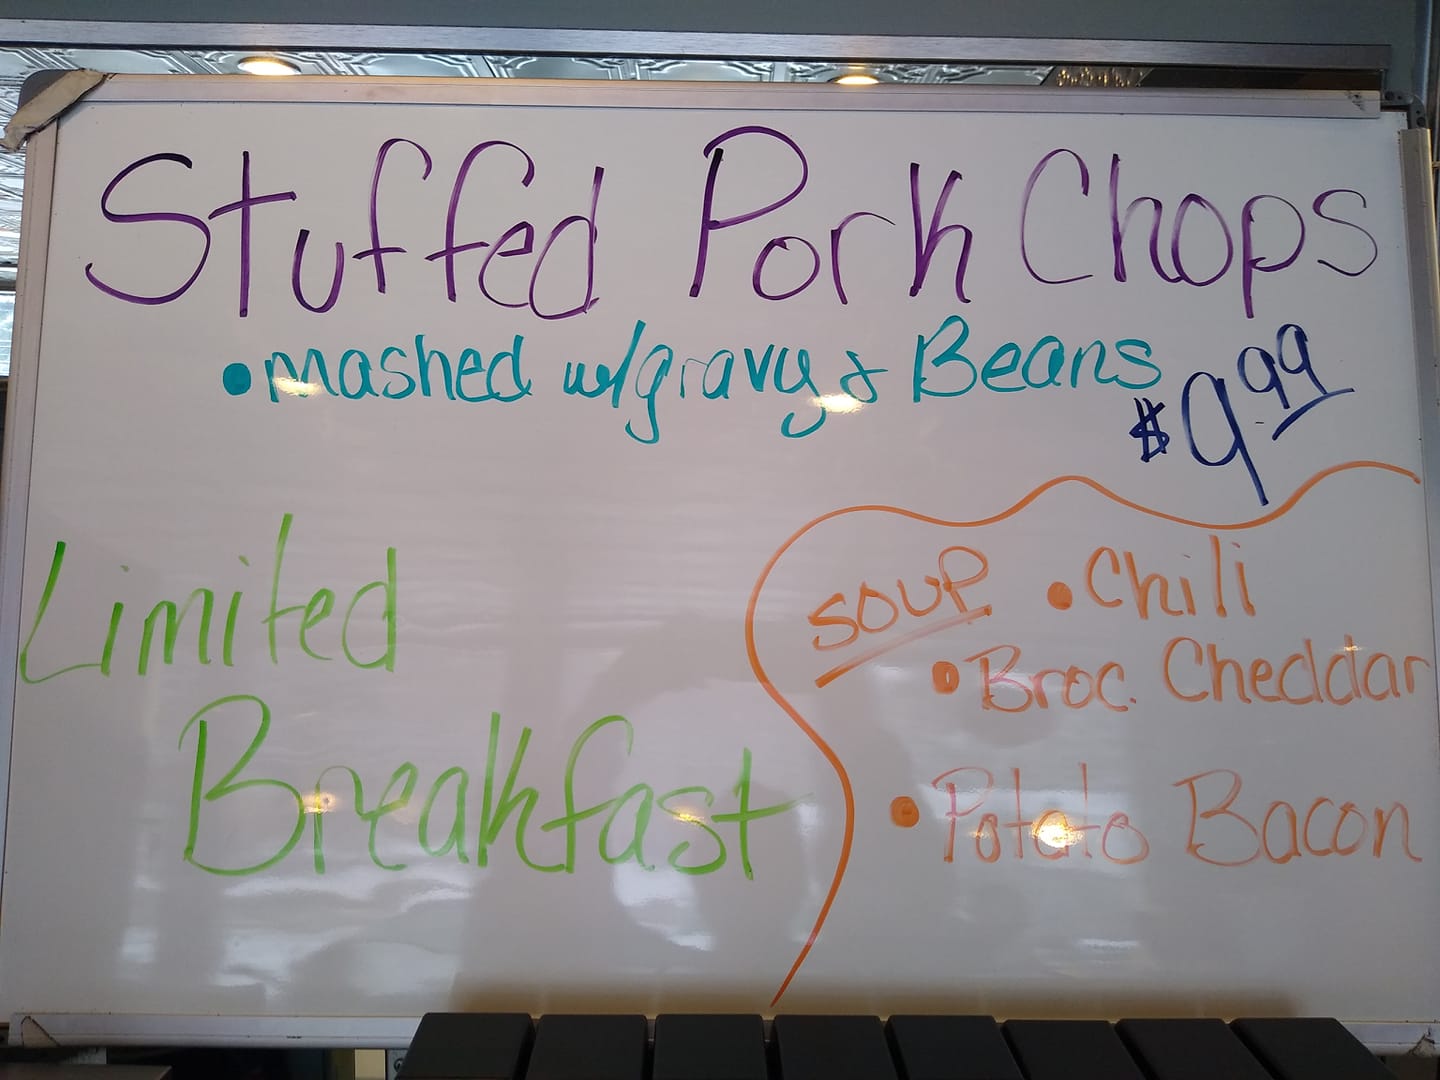 Stuffed Pork Chops
• mashed w/gravy & Beans
$9.99
Limited
Breakfast
SOUP • Chili
• Broc. Cheddar
• Potato Bacon